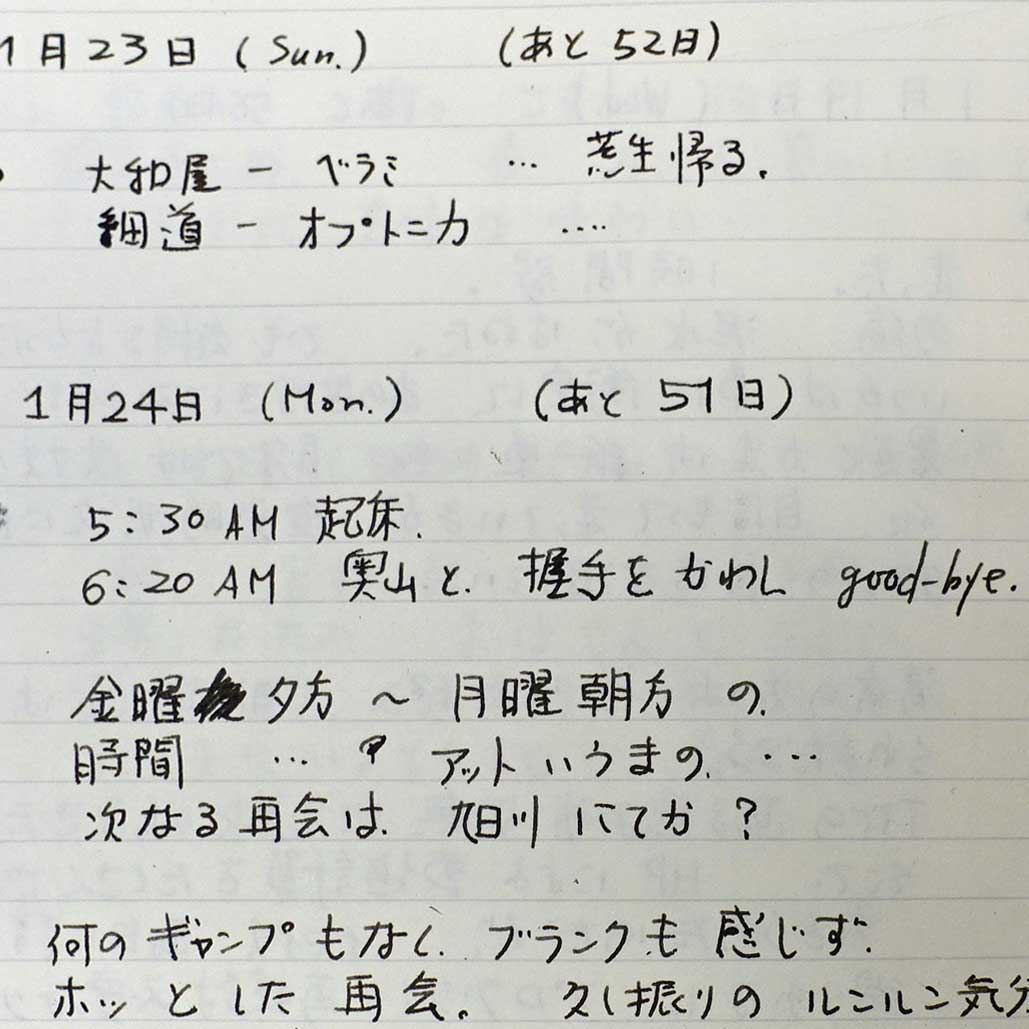 1月23日 (Sun.) (あと 52日)
大和屋 ー ベラミ … 荒生帰る.
細道 ー オプトニカ ....
1月24日 (Mon.) (あと 51日)
5:30 AM 起床.
6:20 AM 奥山と. 握手を かわし good-bye.
金曜 夕方 ～ 月曜 朝方 の.
時間 ... アット いうまの. ...
次なる 再会は. 旭川 にてか ?
何の ギャンプ もなく. ブランクも 感じず.
ホッ と した 再会. 久し振りの ルンルン気分